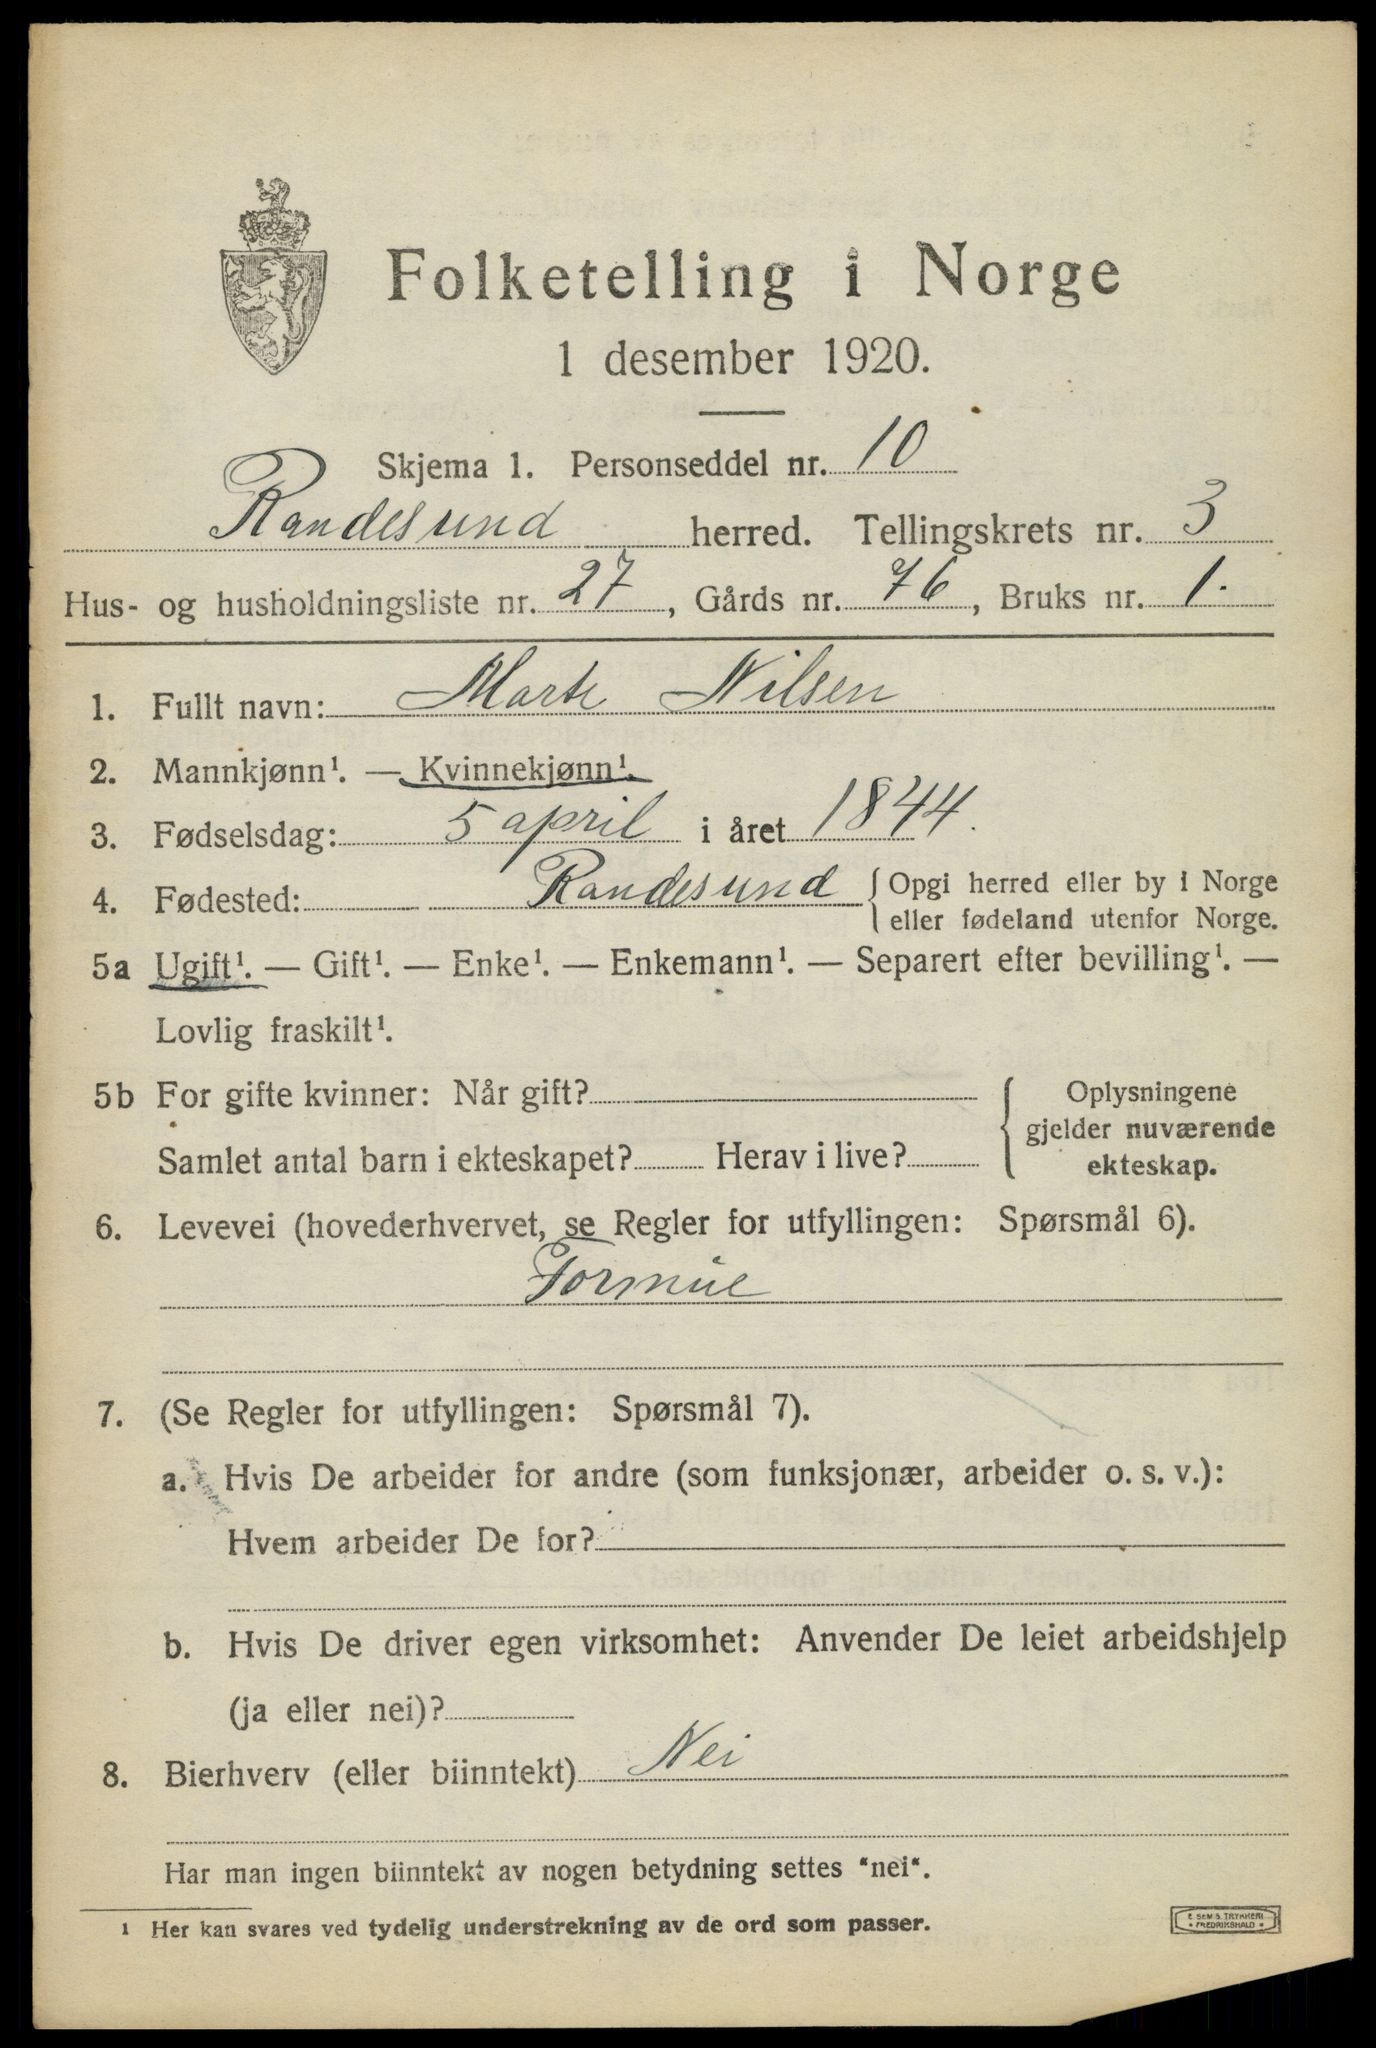 Folketelling i Norge
1 desember 1920.
Skjema 1. Personseddel nr. 10
Randesund herred. Tellingskrets nr. 3
Hus- og husholdningsliste nr. 27, Gårds nr. 76, Bruks nr. 1.
1. Fullt navn: Marte Nilsen
2. Mannkjønn¹. — Kvinnekjønn¹.
3. Fødselsdag: 5 april i året 1844.
4. Fødested: Randesund { Opgi herred eller by i Norge
eller fødeland utenfor Norge.
5a Ugift¹. — Gift¹. — Enke¹. — Enkemann¹. — Separert efter bevilling¹. —
Lovlig fraskilt¹.
5b For gifte kvinner: Når gift?
Samlet antal barn i ekteskapet? Herav i live?
{ Oplysningene
gjelder nuværende
ekteskap.
6. Levevei (hovederhvervet, se Regler for utfyllingen: Spørsmål 6).
Formue
7. (Se Regler for utfyllingen: Spørsmål 7).
a. Hvis De arbeider for andre (som funksjonær, arbeider o. s. v.):
Hvem arbeider De for?
b. Hvis De driver egen virksomhet: Anvender De leiet arbeidshjelp
(ja eller nei)?
8. Bierhverv (eller biinntekt) Nei
Har man ingen biinntekt av nogen betydning settes "nei".
¹ Her kan svares ved tydelig understrekning av de ord som passer.
E. SEM S. TRYKKERI
* FREDRIKSHALD *